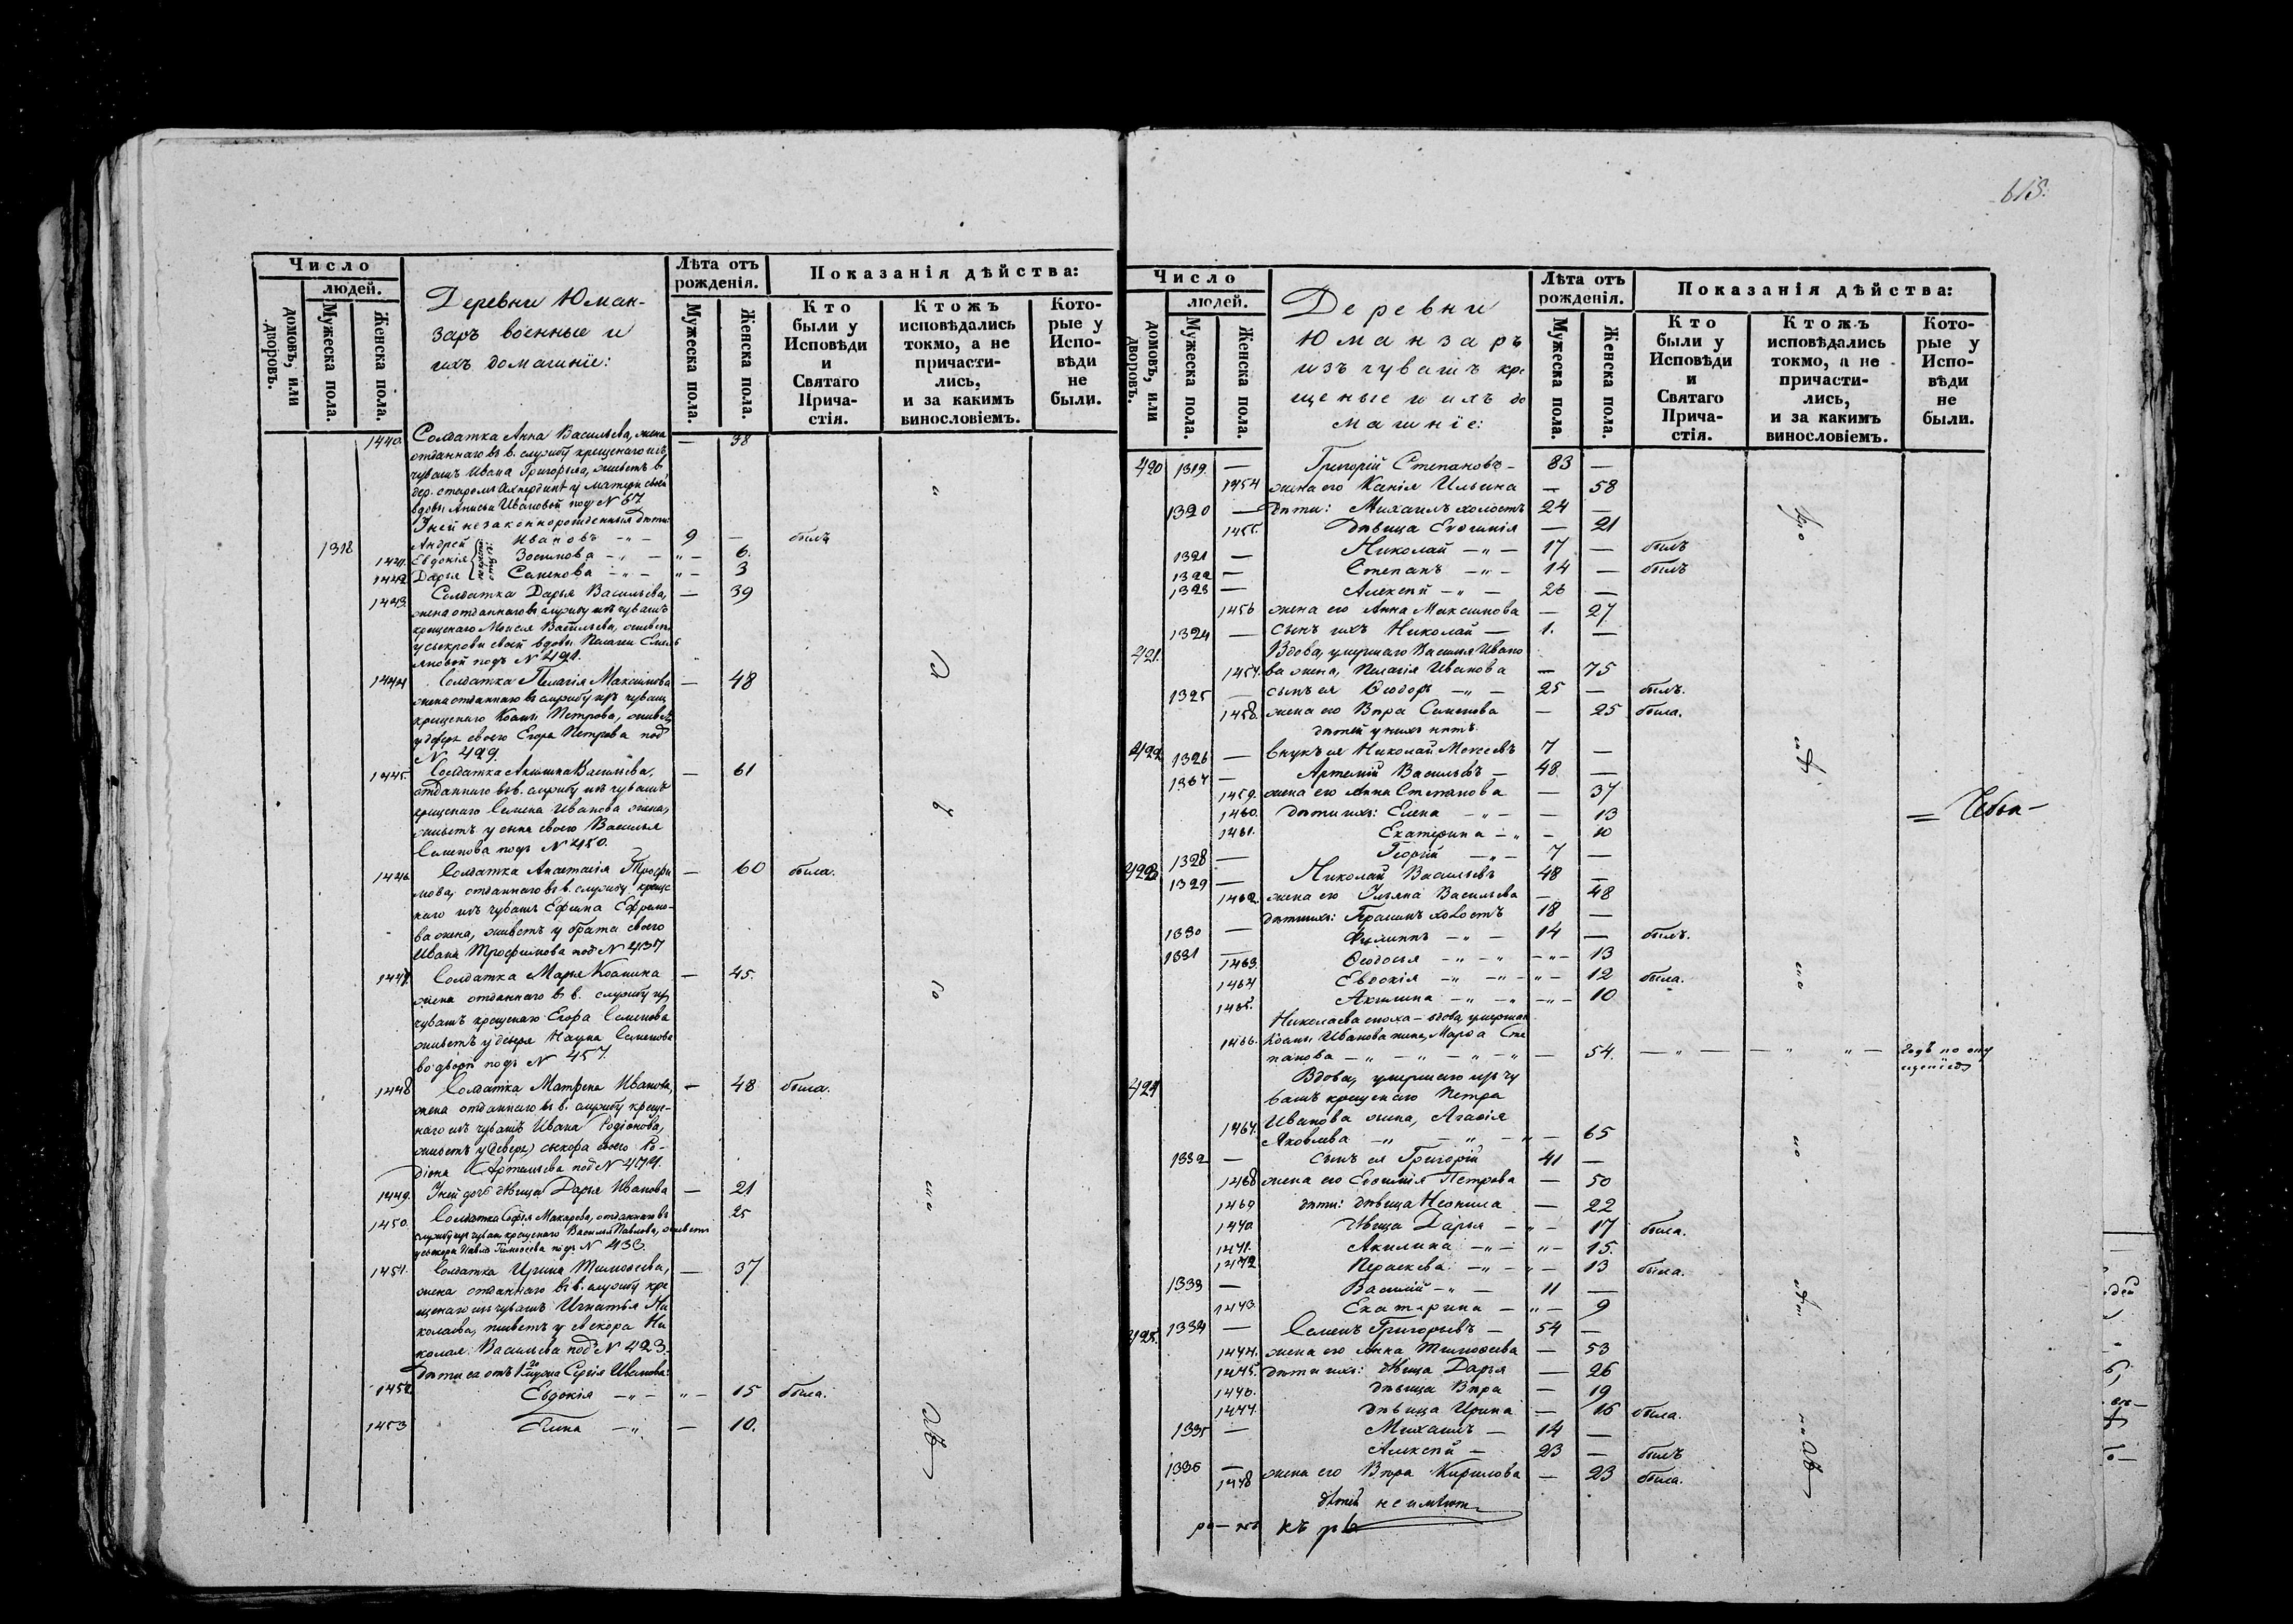 615.
Число
людей.
домовъ, или дворовъ.
Мужеска пола.
Женска пола.
Деревни Юман-
заръ военные и
ихъ домашніе:
Лѣта отъ
рожденія.
Мужеска пола.
Женска пола.
Показанія дѣйства:
Кто
были у
Исповѣди
и
Святаго
Прича-
стія.
Ктожъ
исповѣдались
токмо, а не
причасти-
лись,
и за какимъ
винословіемъ.
Кото-
рые у
Испо-
вѣди
не
были.
1440 Солдатка Анна Васильева, жена — 38
отданнаго въ в. службу крещенаго изъ
чувашъ Ивана Григорьева, живетъ в
дер. у матери своей
вдовы Анисьи Ивановой под N 67
У ней незаконнорожденныя дѣти:
1318 Андрей Ивановъ — 9 — былъ
1441. Евдокія Зосимова — 6.
1442 Дарья Семенова — 3
1443. Солдатка Дарья Васильева, — 39
жена отданнаго въ службу изъ чувашъ
крещенаго Моисея Васильева, живетъ
у свекрови своей вдовы Пелагеи Емель
яновой подъ N 491.
1444 Солдатка Пелагія Максимова — 48
жена отданнаго въ службу изъ чувашъ
крещенаго Козмы Петрова, живетъ
у деверя своего Егора Петрова под
N 499.
1445. Солдатка Акилина Васильева, — 61
отданнаго въ в. службу изъ чувашъ
крещенаго Семена Иванова жена,
живетъ у сына своего Василья
Семенова подъ N 450.
1446. Солдатка Анастасія Трофи — 60 была.
мова, отданнаго въ в. службу креще
наго изъ чувашъ Ефима Ефремо-
ва жена, живетъ у брата своего
Ивана Трофимова под N 437
1447. Солдатка Марья Козмина — 45.
жена отданнаго въ в. службу изъ
чувашъ крещенаго Егора Семенова
живетъ у деверя Наума Семенова
во дворѣ подъ N 457.
1448 Солдатка Матрена Иванова, — 48 была.
жена отданнаго въ в. службу креще-
наго изъ чувашъ Ивана Родіонова,
живетъ у (деверя) свекора своего Ро-
діона Артемьева под N 474.
1449. У ней дочь дѣвица Дарья Иванова — 21
1450. Солдатка Софья Макарова, отданнаго въ 25
службу изъ чуваш крещенаго Василья Павлова, живетъ
у свекора Павла Тимофеева подъ N 433.
1451. Солдатка Ирина Тимофеева, — 37
жена отданнаго въ в. службу кре
щенаго изъ чувашъ Игнатья Ни
колаева, живетъ у свекора Ни
колая Васильева под N 423.
Дѣти ея отъ 1го мужа Сергія Иванова:
1452 Евдокія — 15 была.
1453 Елена — 10.
Число
людей.
домовъ, или дворовъ.
Мужеска пола.
Женска пола.
Деревни
Юманзаръ
изъ чувашъ кре
щеные и ихъ до
машніе:
Лѣта отъ
рожденія.
Мужеска пола.
Женска пола.
Показанія дѣйства:
Кто
были у
Исповѣди
и
Святаго
Прича-
стія.
Ктожъ
исповѣдались
токмо, а не
причасти-
лись,
и за какимъ
винословіемъ.
Кото-
рые у
Испо-
вѣди
не
были.
420 1319. — Григорій Степановъ — 83 —
1454 жена его Ксенія Ильина — 58
1320 — дѣти: Михаилъ холостъ 24 —
1455. дѣвица Евфимія — 21
1321 — Николай — 17 — былъ
1322 — Степанъ — 14 — былъ
1323 — Алексѣй — 26 —
1456 жена его Анна Максимова — 27
1324 — сынъ ихъ Николай — 1. —
421. Вдова, умершаго Василья Ивано
1457. ва жена, Пелагія Иванова — 75
1325 — сынъ ея Ѳеодоръ — 25 — былъ.
1458. жена его Вѣра Семенова — 25 была.
дѣтей у нихъ нѣтъ.
422 1326 — внукъ ея Николай Моисеевъ 7 —
1327 — Артемій Васильевъ — 48. —
1459. жена его Анна Степанова — 37
1460. дѣти ихъ: Елена — 13
1461. Екатерина — 10
1328 — Георгій — 7 —
423 1329 — Николай Васильевъ 48 —
1462. жена его Ульяна Васильева — 48
дѣти ихъ: Герасимъ холостъ 18 —
1330 — Филиппъ — 14 — былъ.
1331 — 1463. Ѳеодосья — 13
1464 Евдокія — 12 была.
1465. Акилина — 10
Николаева сноха — вдова, умершаго
1466. Козмы Иванова жена, Марѳа Сте
панова — 54.
424 Вдова, умершаго изъ чу
вашъ крещенаго Петра
Иванова жена, Агафія
1467. Яковлева — 65
1332 — сынъ ея Григорій 41 —
1468 жена его Евфимія Петрова — 50
1469 дѣти: дѣвица Неонила — 22
1470 дѣвица Дарья — 17 была.
1471. Акилина — 15.
1472 Параскева — 13 была.
1333 — Василій — 11 —
1473. Екатерина — 9
425. 1334 — Семенъ Григорьевъ — 54 —
1474. жена его Анна Тимофеева — 53
1475. дѣти ихъ: дѣвица Дарья — 26
1476. дѣвица Вѣра — 19
1477. дѣвица Ирина — 16 была.
1335 — Михаилъ — 14 —
1336 — Алексѣй — 23 — былъ
1478 жена его Вѣра Кирилова — 23 была.
дѣтей не имѣютъ